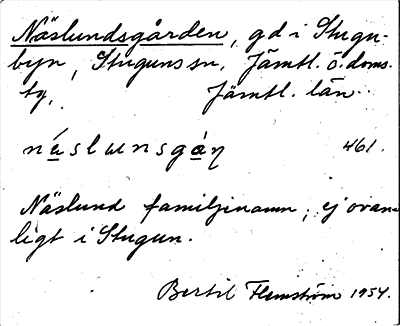 Näslundsgården, gd i Stugu-
byn, Stuguns sn, Jämtl. ö. doms.
Jämtl. län.
näslunsgáṇ 461.
Näslund familjenamn, ej ovan-
ligt i Stugun.
Bertil Flemström 1954.